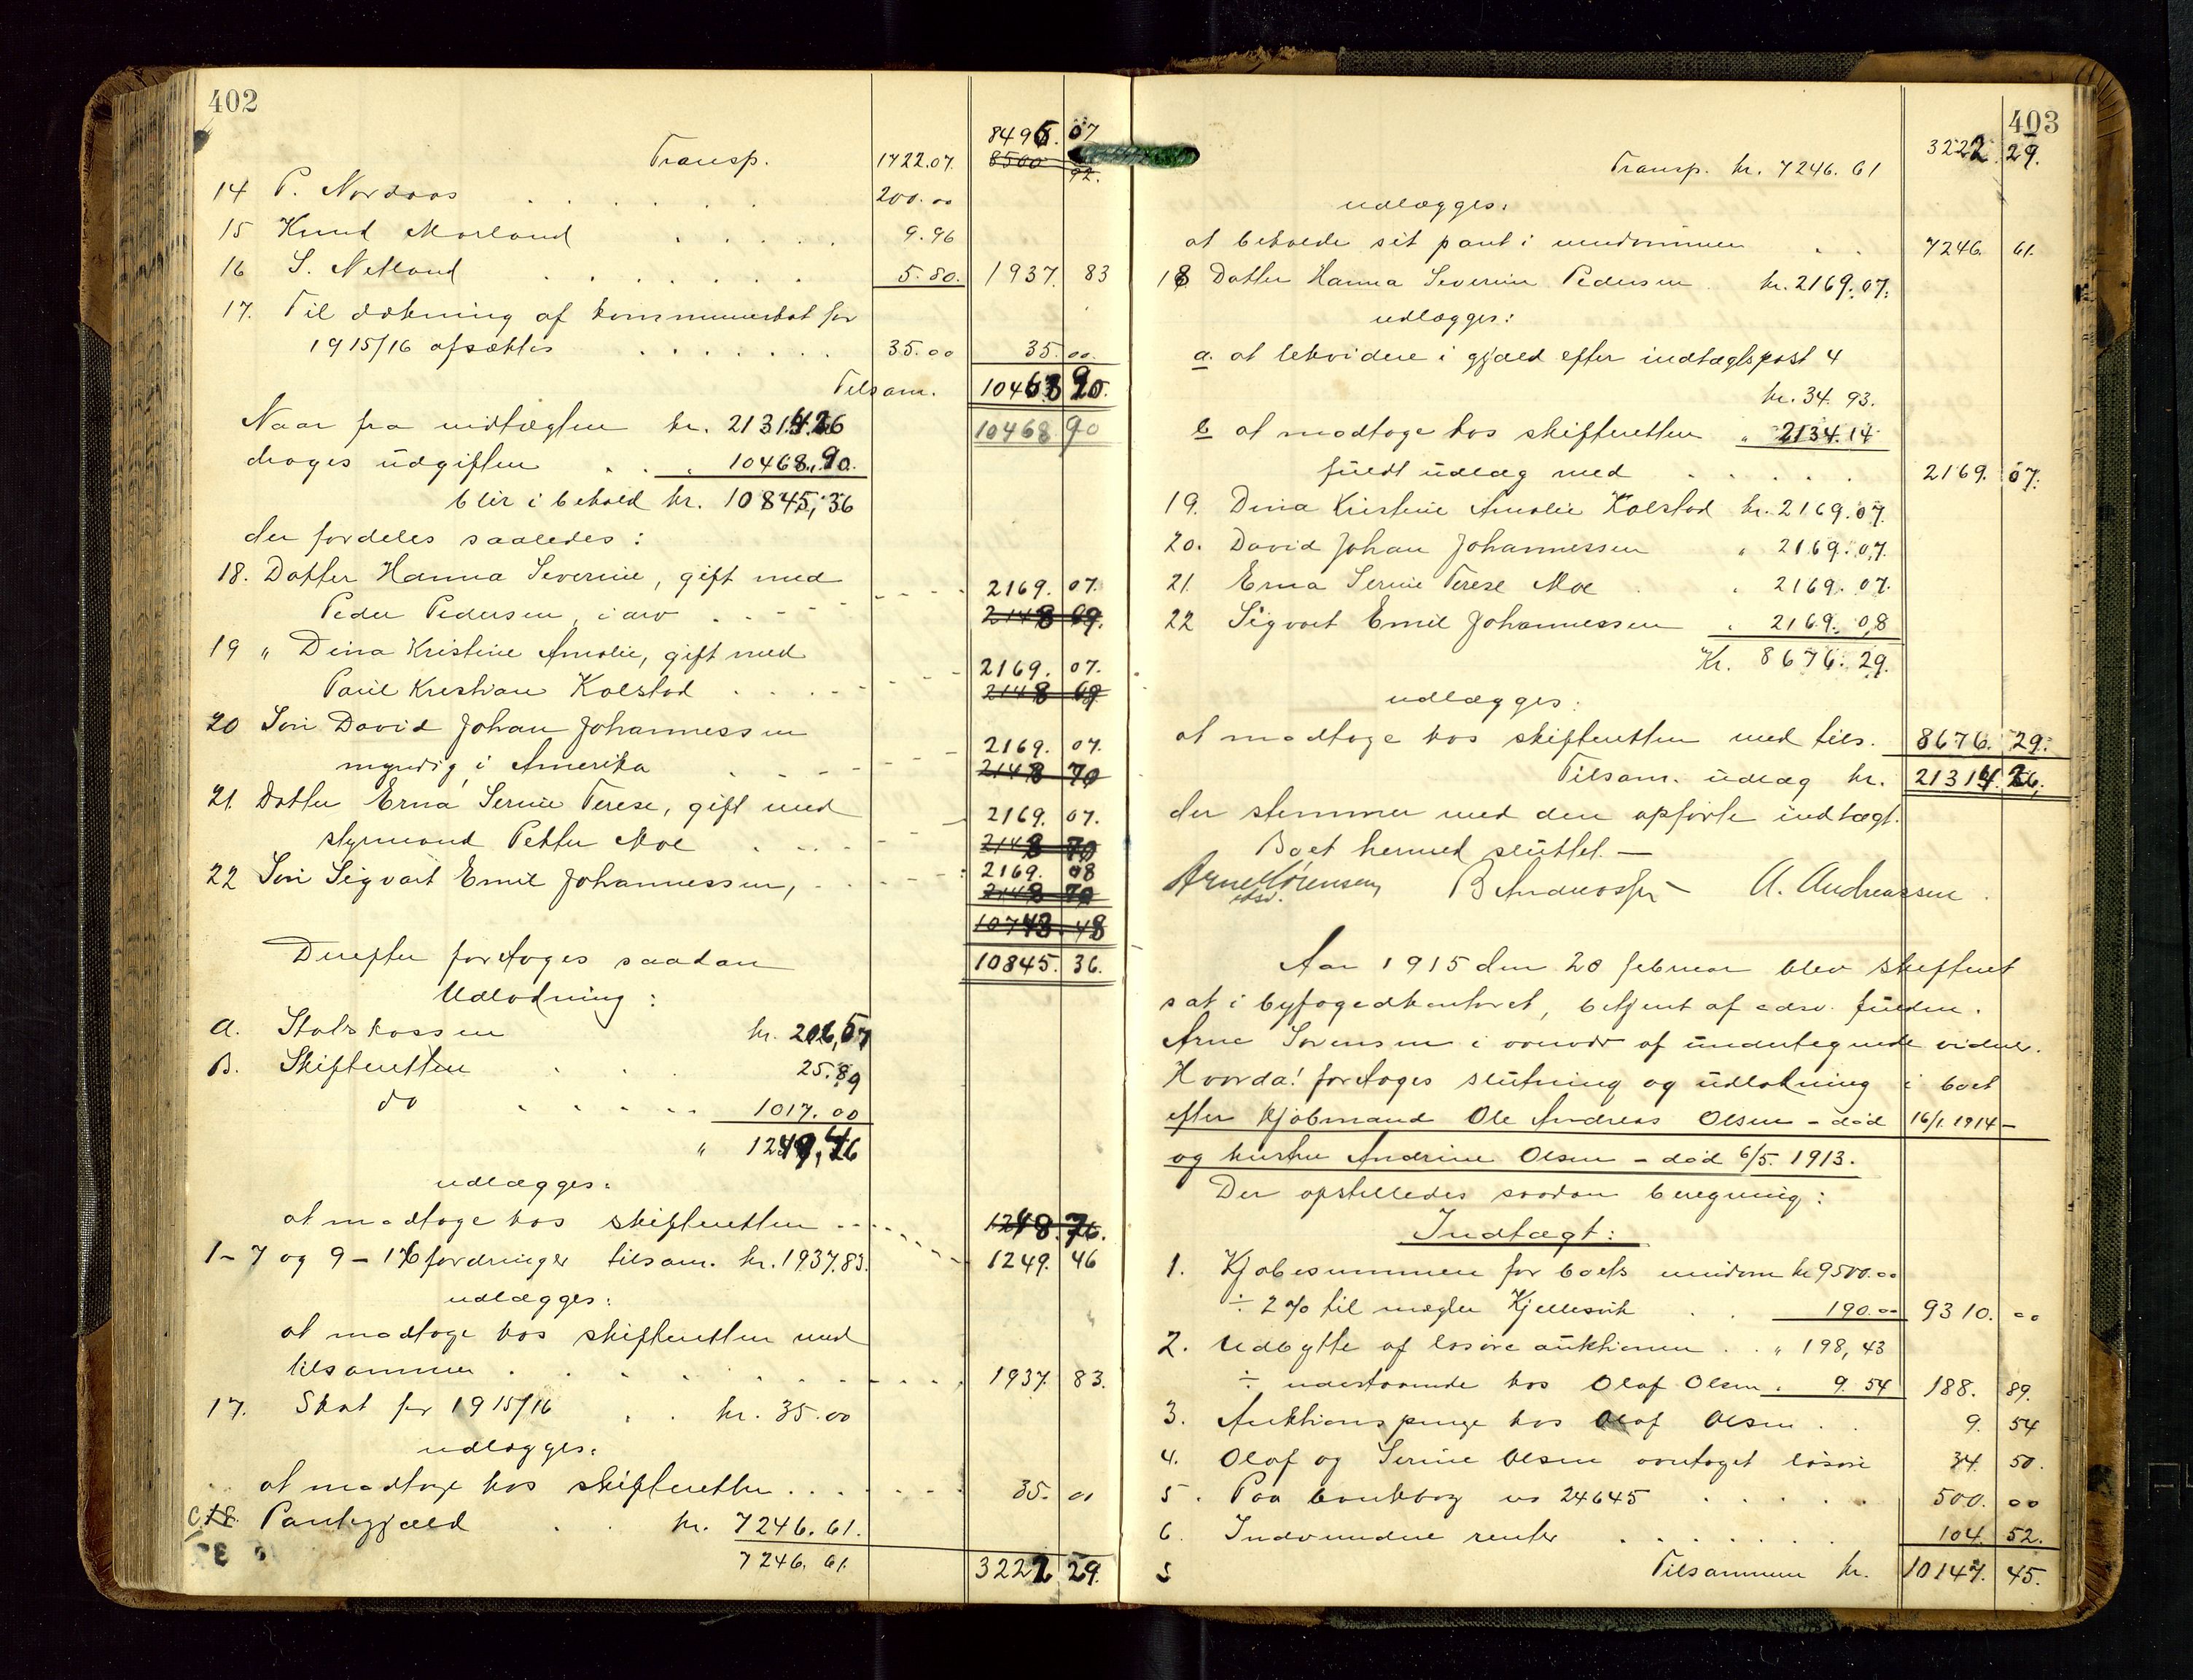 402
8496. 07
Transp. 1722.07. 8500 92.
14 P. Nordaas . . . . . . 200.00
15 Knud Morland . . . . . 9.96
16 S. Netland . . . . . . 5.80. 1937. 83
17. Til dækning af kommuneskat for
1915/16 afsættes . . . . . . . 35.00 35.00.
Tilsam. 10468 90.
Naar fra indtægten kr. 21314.26 10468 90
drages udgiften . . „ 10468.90.
blir i behold kr. 10845,36
der fordeles saaledes:
18. Datter Hanna Severine, gift med 2169. 07.
Peder Pedersen, i arv . . 2148 69.
19 „ Dina Kristine Amalie, gift med 2169. 07.
Paul Kristian Kolstad . . . 2148 69
20 Søn David Johan Johannessen 2169. 07.
myndig, i Amerika . 2148 70
21. Datter Erna Serine Terese, gift med 2169. 07.
styrmand Petter Moe . . . 2148 70
22 Søn Sigvart Emil Johannessen, 2169. 08
2148 70
10743. 48
Derefter foretoges saadan 10845. 36.
Udlodning:
A. Statskassen kr. 206,57
B. Skifteretten . . . 25.89
do . . . . . 1017.00
„ 1249,46
udlægges:
at modtage hos skifteretten .... 1248.76.
1-7 og 9-16 fordringer tilsam. kr. 1937.83. 1249. 46
udlægges:
at modtage hos skifteretten med
tilsammen . . . . . . . . 1937. 83.
17. Skat for 1915/16 . . kr. 35.00
udlægges:
at modtage hos skifteretten . . . 35. 00
C. 18. Pantegjæld . . kr. 7246.61.
7246. 61. 3222 29.
403
3222. 29.
Transp. kr. 7246. 61
udlægges:
at beholde sit pant i eiendommen . . 7246. 61.
18 Datter Hanna Severine Pedersen . kr. 2169.07.
udlægges:
a. at likvidere i gjæld efter indtægtspost 4
kr. 34. 93.
b at modtage hos skifteretten „ 2134.14
fuldt udlæg med . . . . . 2169. 07.
19. Dina Kristine Amalie Kolstad kr. 2169.07.
20. David Johan Johannessen „ 2169.07.
21. Erna Serine Terese Moe . „ 2169.07.
22 Sigvart Emil Johannessen „ 2169.08
Kr. 8676. 29.
udlægges:
at modtage hos skifteretten med tils. 8676. 29.
Tilsam. udlæg kr. 21314. 26.
der stemmer med den opførte indtægt.
Boet hermed sluttet. —
Arne Sørensen edsv. A. Andreassen
Aar 1915 den 20 februar blev skifteret
sat i byfogedkontoret, betjent af edsv. fuldm.
Arne Sørensen i overvær af undertegnede vidner.
Hvorda! foretoges slutning og udlodning i boet
efter kjøbmand Ole Andreas Olsen – død 16/1. 1914 –
og hustru Andrine Olsen – død 6/5. 1913.
Der opstilledes saadan beregning:
Indtægt:
1. Kjøbesummen for boets eiendom kr 9500.00
÷ 2% til mægler Kjellesvik . . 190.00 9310. 00
2. Udbytte af løsøre auktionen . . „ 198,43
÷ udestaaende hos Olaf Olsen „ 9.54 188. 89.
3. Auktionspenge hos Olaf Olsen . . 9. 54
4. Olaf og Serine Olsen overtaget løsøre 34. 50.
5. Paa bankbog no 24645 . . . . . 500. 00
6. Indvundne renter . . . . . . 104. 52.
5 Tilsammen kr. 10147. 45.